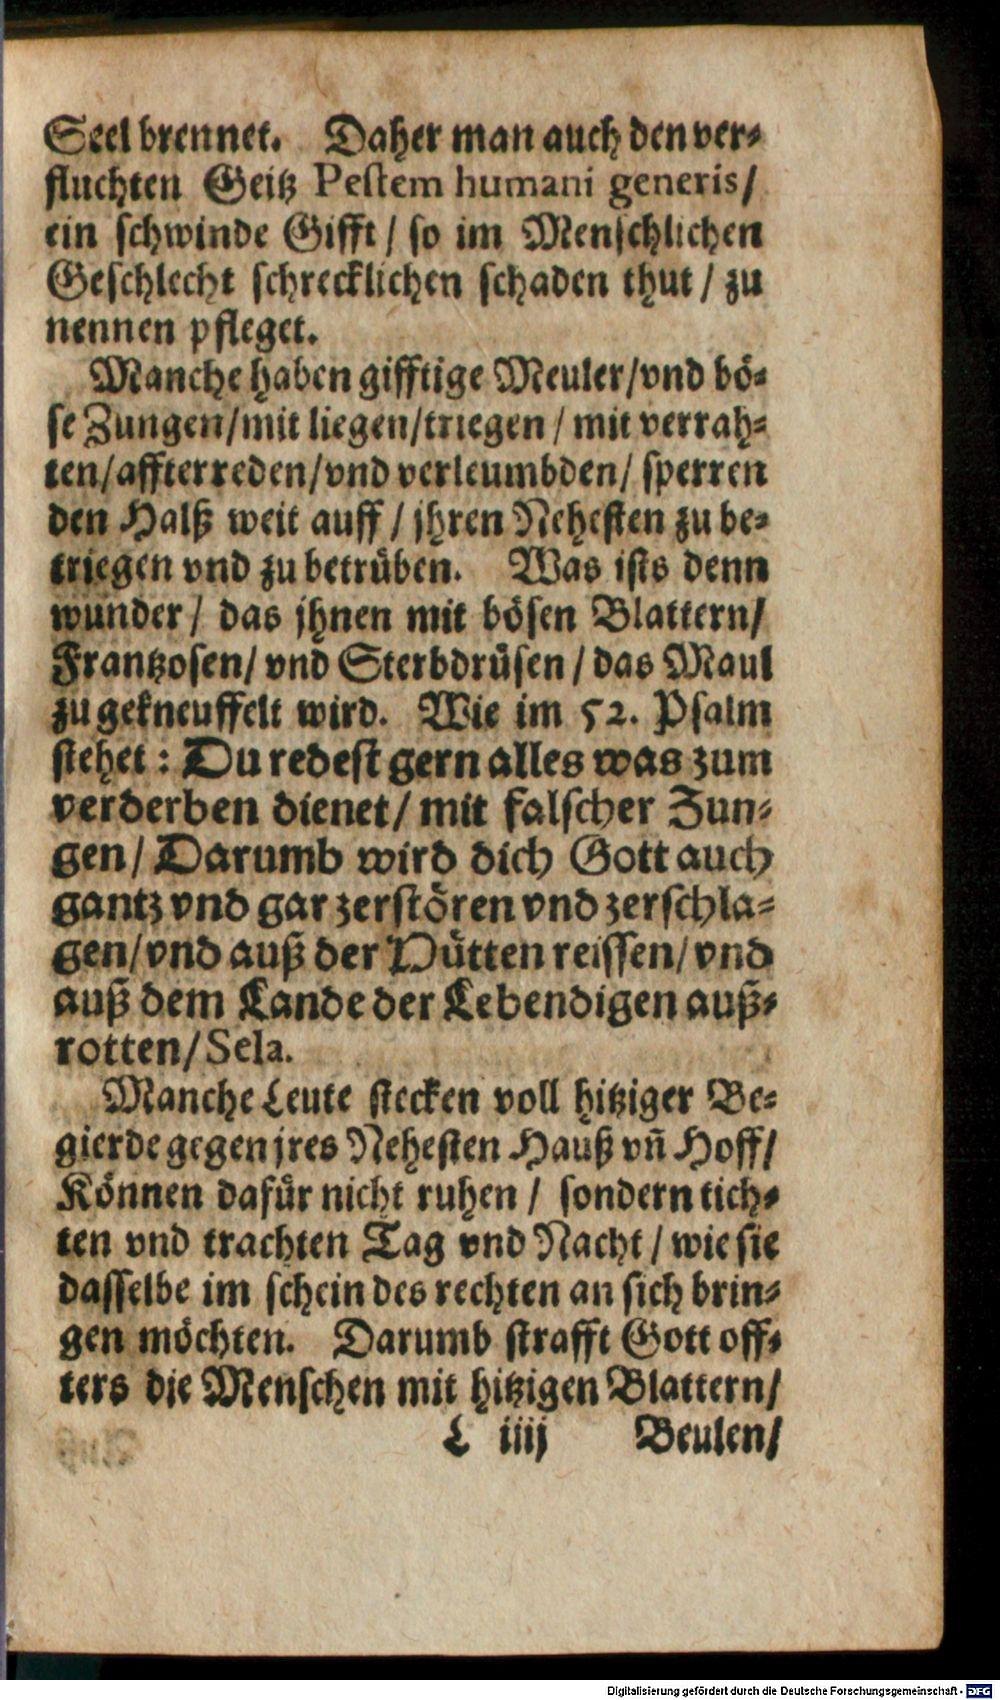 Seel brennet. Daher man auch den ver-
fluchten Geitz Pestem humani generis/
ein schwinde Gifft / so im Menschlichen
Geschlecht schrecklichen schaden thut / zu
nennen pfleget.
Manche haben gifftige Meuler/vnd bö-
se Zungen/mit liegen/triegen / mit verrah-
ten/affterreden/vnd verleumbden/ sperren
den Halß weit auff / jhren Nehesten zu be-
triegen vnd zu betrüben. Was ists denn
wunder / das jhnen mit bösen Blattern/
Frantzosen/ vnd Sterbdrüsen / das Maul
zu gekneuffelt wird. Wie im 52. Psalm
stehet : Du redest gern alles was zum
verderben dienet/ mit falscher Zun-
gen/ Darumb wird dich Gott auch
gantz vnd gar zerstören vnd zerschla-
gen/vnd auß der Hütten reissen/ vnd
auß dem Lande der Lebendigen auß-
rotten/ Sela.
Manche Leute stecken voll hitziger Be-
gierde gegen jres Nehesten Hauß vñ Hoff/
Können dafür nicht ruhen / sondern tich-
ten vnd trachten Tag vnd Nacht / wie sie
dasselbe im schein des rechten an sich brin-
gen möchten. Darumb strafft Gott off-
ters die Menschen mit hitzigen Blattern/
L iiij Beulen/
Digitalisierung gefördert durch die Deutsche Forschungsgemeinschaft - DFG